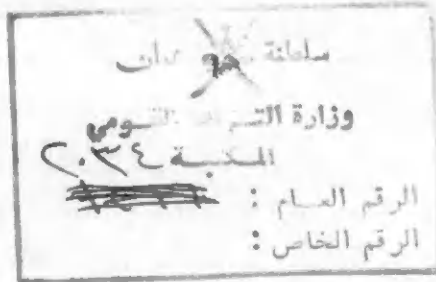 سلطنة عمان
وزارة التراث القومي
المكتبة ٢٠٣٤
الرقم العام :
الرقم الخاص :